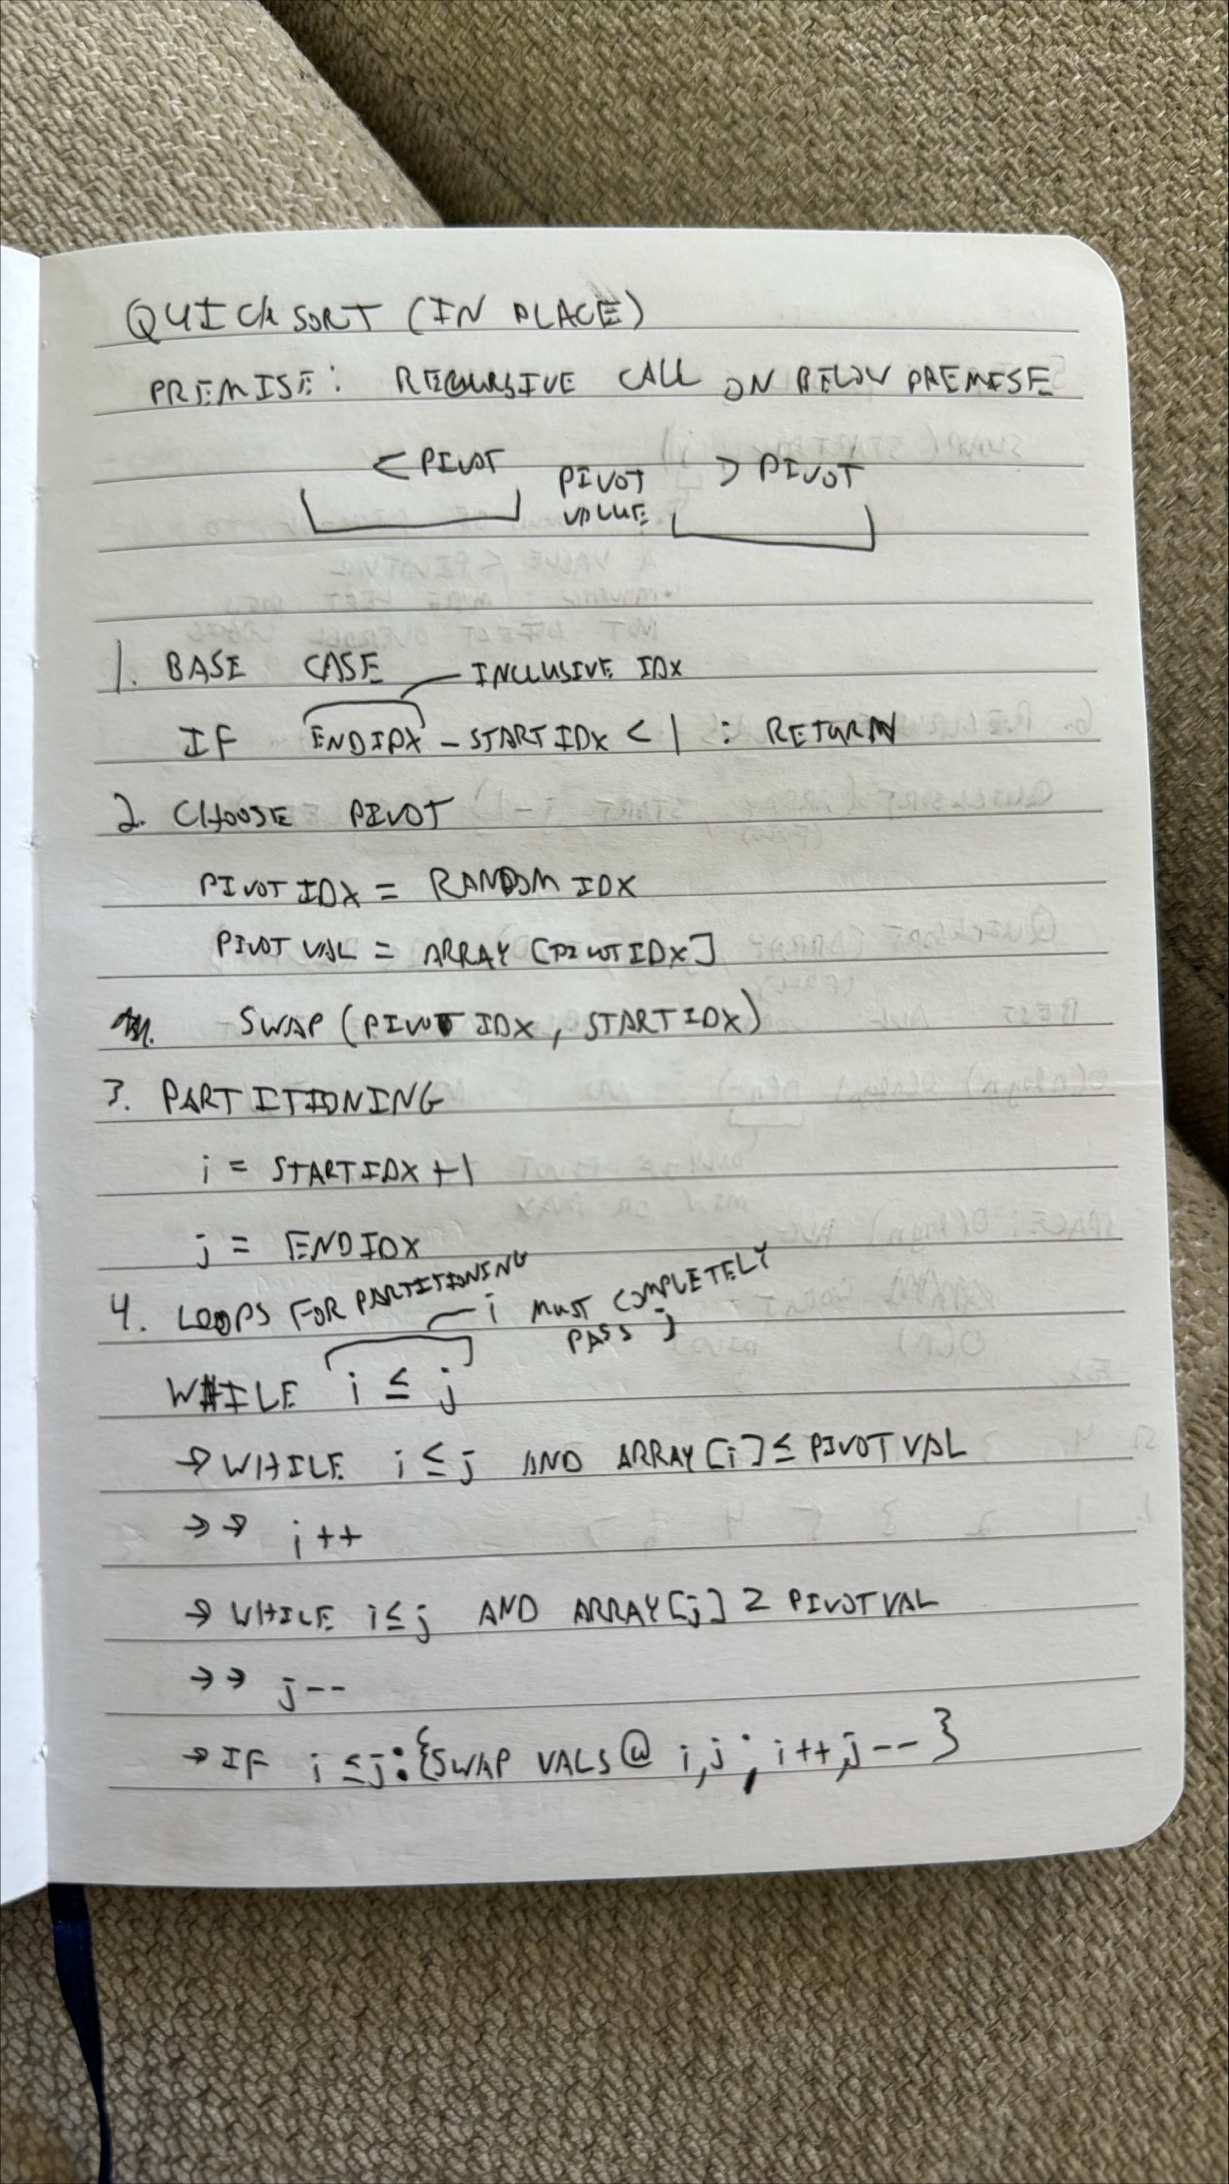 QUICKSORT (IN PLACE)
PREMISE: RECURSIVE CALL ON BELOW PREMISE
< PIVOT PIVOT VALUE > PIVOT
1. BASE CASE — INCLUSIVE IDX
IF ENDIDX - STARTIDX < 1 : RETURN
2. CHOOSE PIVOT
PIVOT IDX = RANDOM IDX
PIVOT VAL = ARRAY [PIVOTIDX]
SWAP (PIVOT IDX, STARTIDX)
3. PARTITIONING
i = STARTIDX + 1
j = ENDIDX
4. LOOPS FOR PARTITIONING — i MUST COMPLETELY
PASS j
WHILE i ≤ j
→ WHILE i ≤ j AND ARRAY [i] ≤ PIVOT VAL
→→ i ++
→ WHILE i ≤ j AND ARRAY [j] ≥ PIVOT VAL
→→ j --
→ IF i ≤ j : {SWAP VALS @ i, j ; i++, j-- }